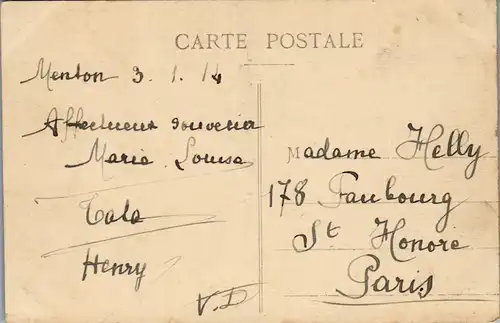 CARTE POSTALE
Menton 3. 1. 14
Affectueux souvenir
Maria Louisa
Tala
Henry
V.D
Madame Helly
178 Faubourg
St Honoré
Paris